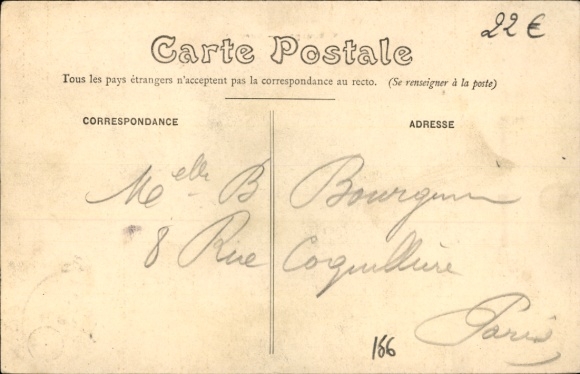 22 €
Carte Postale
Tous les pays étrangers n'acceptent pas la correspondance au recto. (Se renseigner à la poste)
CORRESPONDANCE
ADRESSE
Melle B
8 Rue Coquillière
Paris
166